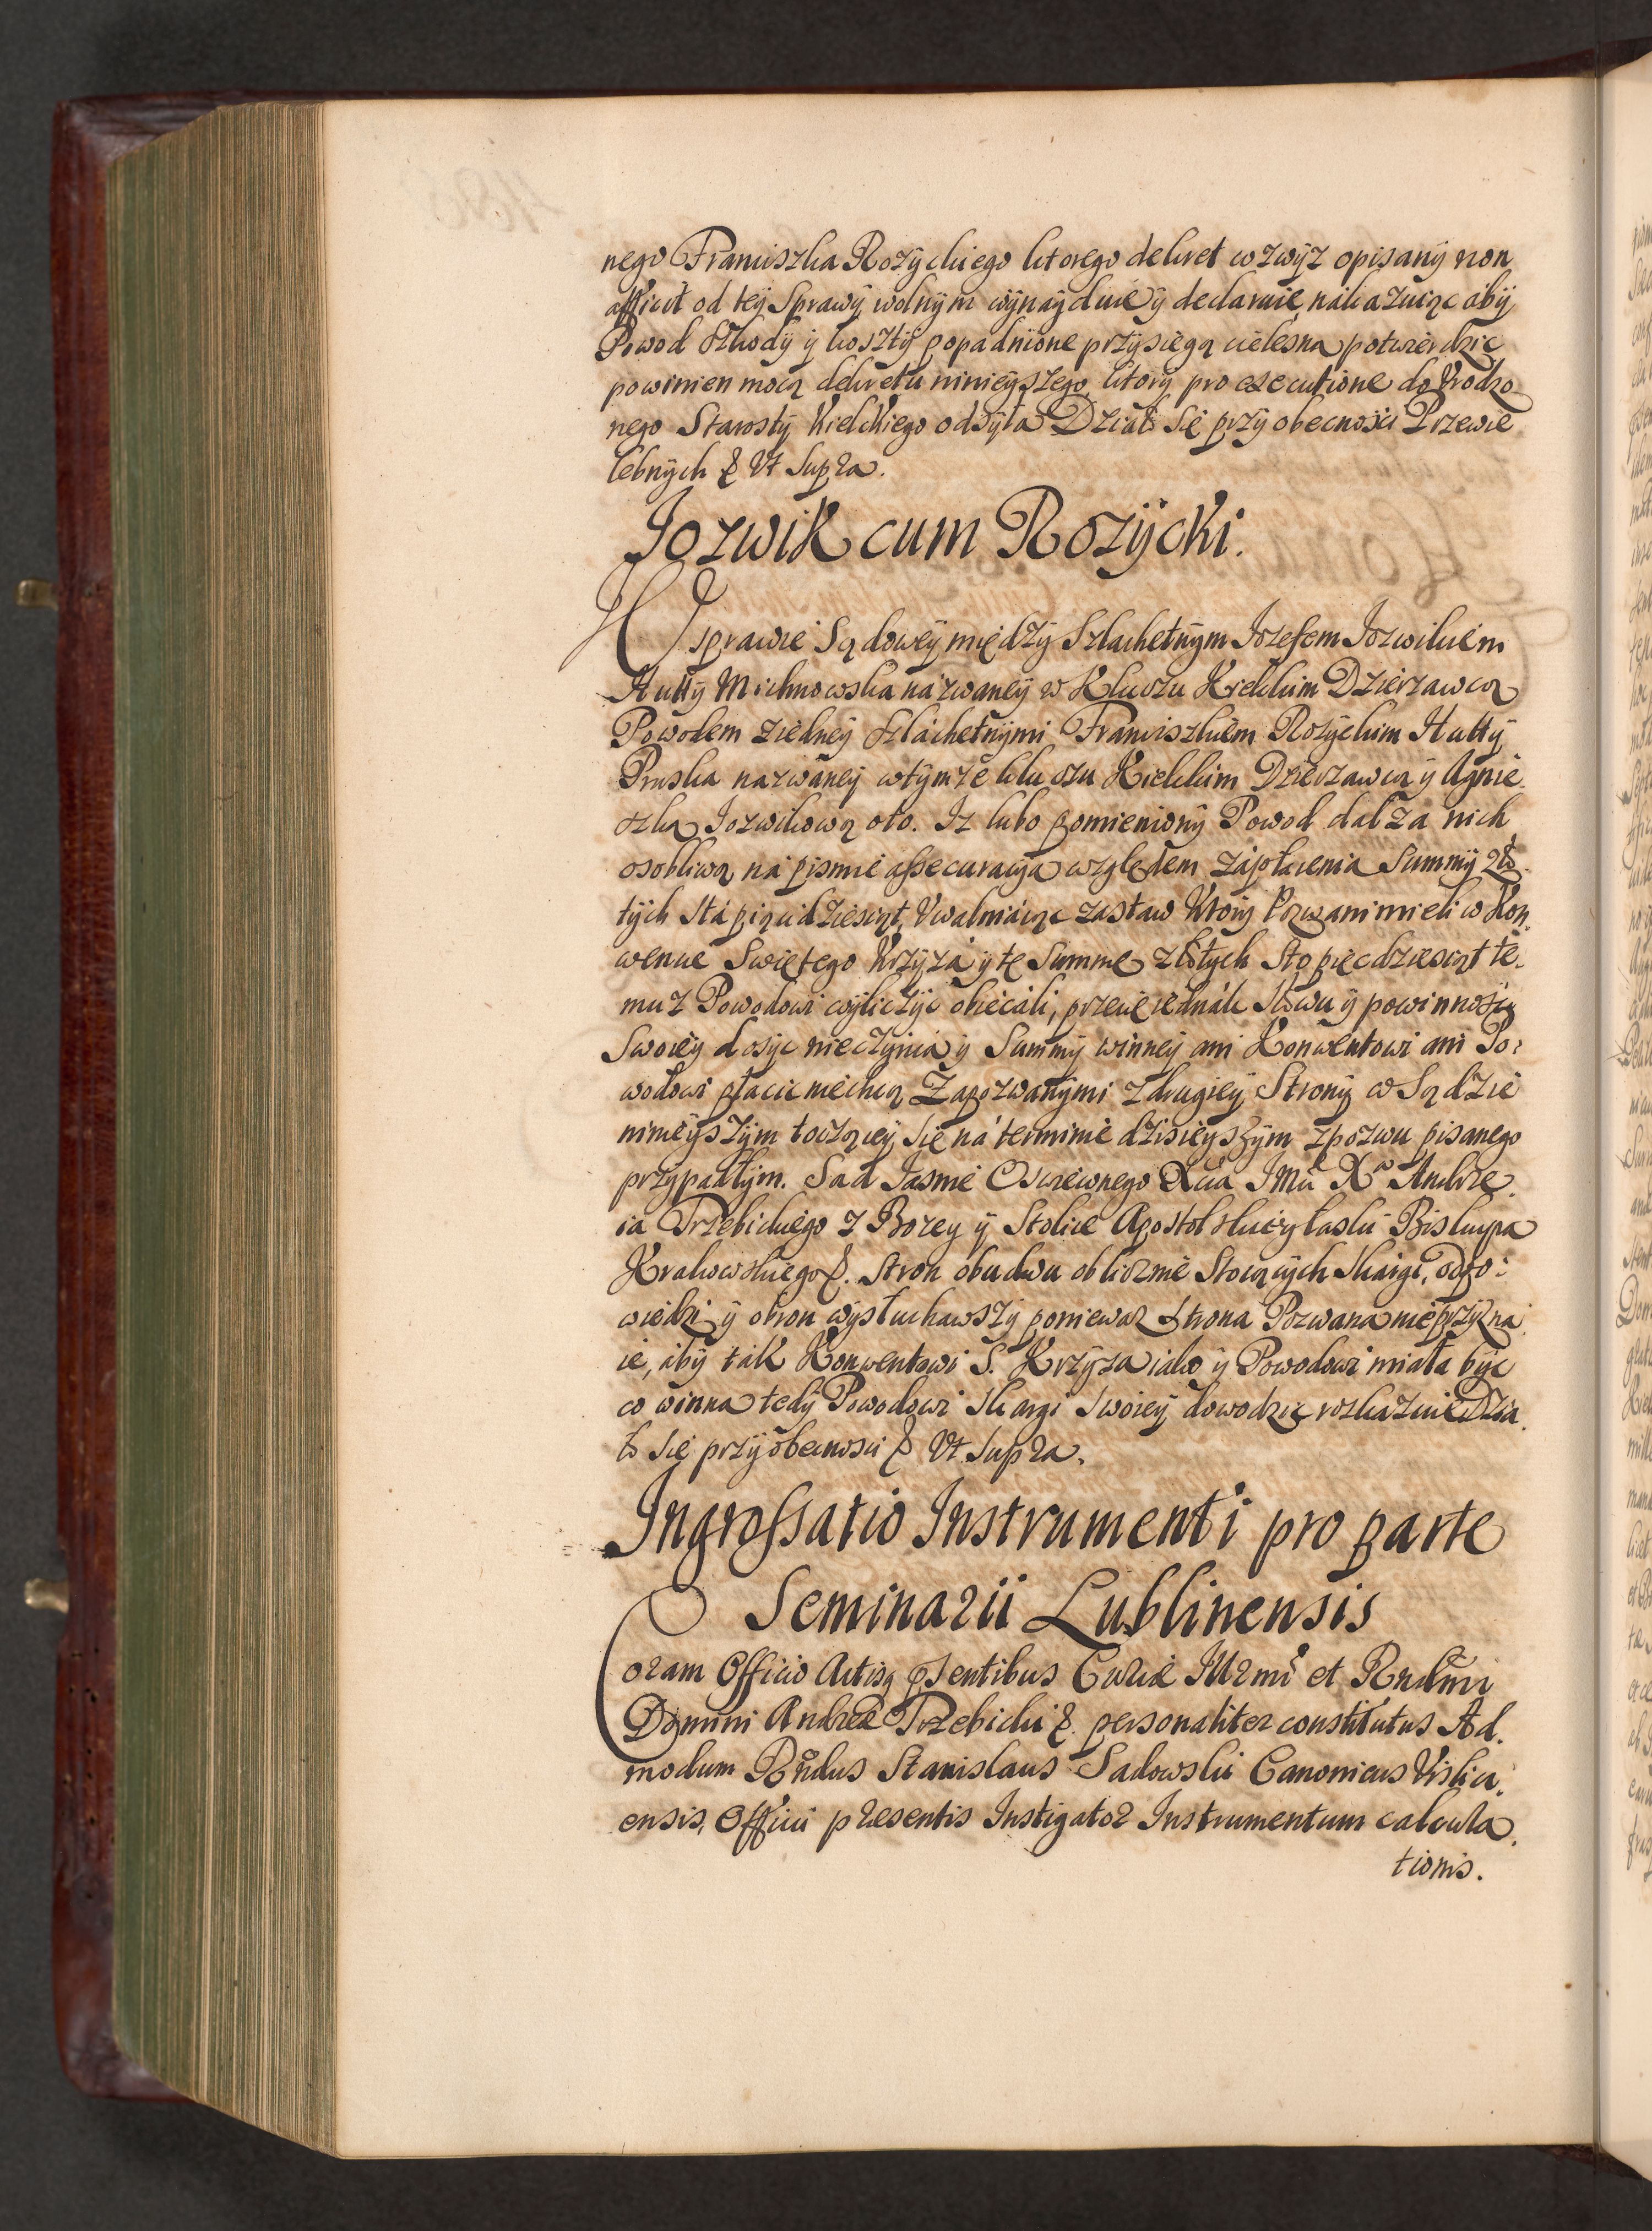 nego Franciszka Rożyckiego ktorego dekret wzwyż opisany non
afficit od tey Sprawy wolnym wynayduie y declaruie, nakazuiąc aby
Powod szkody y koszty popadnione przysięgą cielesną potwierdzić
powinien mocą dekretu ninieyszego, ktory pro executione do Urodzo
nego Starosty Kielckiego odsyła Działo się przy obecności Przewie
lebnych & Ut Supra.
Jozwik cum Rozycki.
W sprawie Sądowey między Szlachetnym Iozefem Iozwikiem
Hutty Michnowska nazwaney w Kluczu Kielckim Dzierzawcą
Powodem z iedney szlachetnymi Franciszkiem Rozyckim Hutty
Pruska nazwaney w tymze kluczu Kielckim Dzierzawcą y Agnie
szką Jozwikową oto. Iz lubo pomieniony Powod dał za nich
osobliwą na pismie assecuracyą względem zapłacenia Summy zło
tych sta pięcidziesiąt, Uwalniaiąc zastaw ktory Pozwani mieli w Kon
wencie Swiętego Krzyża y tę Summę złotych Sto pięcdziesiąt te
muz Powodowi wyliczyć obiecali, przecie iednak słowu y powinności
Swoiey dosyc nieczynią y Summy winney ani Konwentowi ani Po:
wodowi płacić niechcą Zapozwanymi z drugiey Strony w Sądzie
ninieyszym toczącey się na terminie dzisieyszym z pozwu pisanego
przypadłym. Sąd Iasnie Oswieconego Xcia IMci Xa Andrze
ia Trzebickiego z Bozey y Stolice Apostolskiey łaski Biskupa
Krakowskiego &. Stron obudwu oblicznie Stoiących Skargi, odpo:
wiedzi y obron wysłuchawszy poniewaz Strona Pozwana nieprzyzna
ie, aby tak Konwentowi S. Krzyza iako y Powodowi miała być
co winna tedy Powodowi Skargi Swoiey dowodzić roskazuie Dzia
ło się przy obecnosci & Ut Supra.
Ingrossatio Instrumenti pro parte
Seminarii Lublinensis
Coram Officio Actisq pSentibus Curiæ Illrmi et Rndmi
Domini Andreæ Trzebicki &. personaliter constitutus Ad.
modum Rndus Stanislaus Sadowski Canonicus Vislici.
ensis, Officii præsentis Instigator Instrumentum calcula.
tionis.